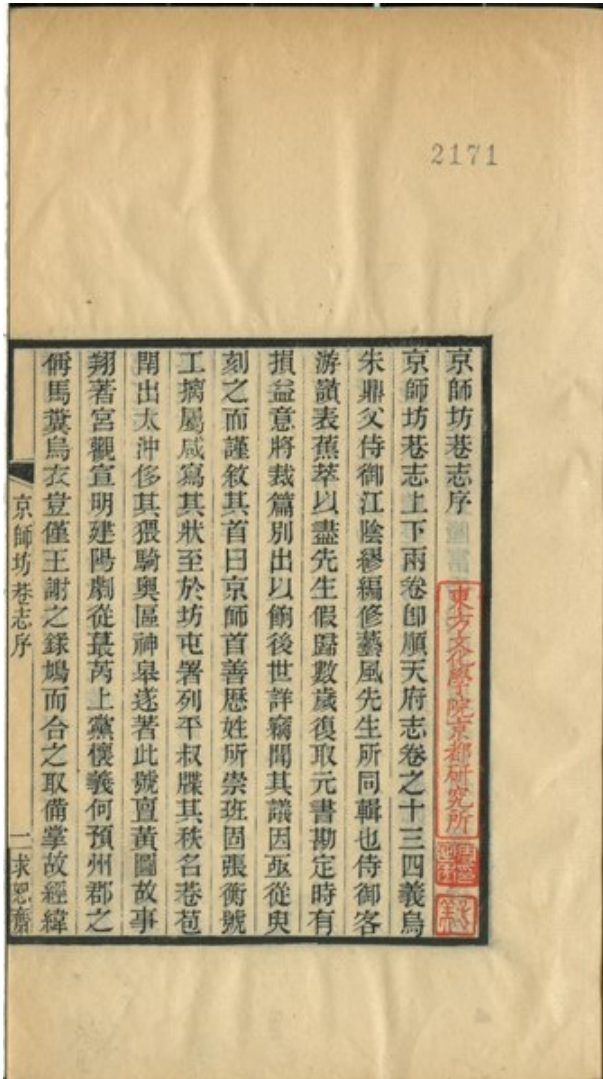 2171
京師坊巷志序
京師坊巷志上下兩卷卽順天府志卷之十三四義烏
朱鼎父侍御江陰繆編修藝風先生所同輯也侍御客
游鎖表蕉萃以盡先生假歸數歲復取元書勘定時有
損益意將裁篇別出以餉後世詳竊聞其議因亟從臾
刻之而謹敘其首曰京師首善歷姓所崇班固張衡號
工摛屬咸寫其狀至於坊屯署列平叔牒其秩名巷苞
閈出太沖侈其猥騎奧區神皋遂著此號亶黃圖故事
翔著宮觀宣明建陽劇從蕞芮上黨懷義何預州郡之
偁馬糞烏衣豈僅王謝之錄鳩而合之取備掌故經緯
京師坊巷志序
一求恕齋
東方文化學院京都研究所